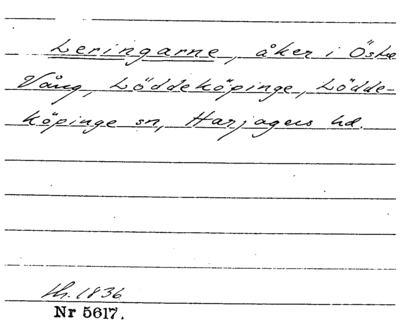 Leringarne, åker i Östra
Vång, Löddeköpinge, Lödde-
köpinge sn, Harjagers hd.
lh. 1836
Nr 5617.